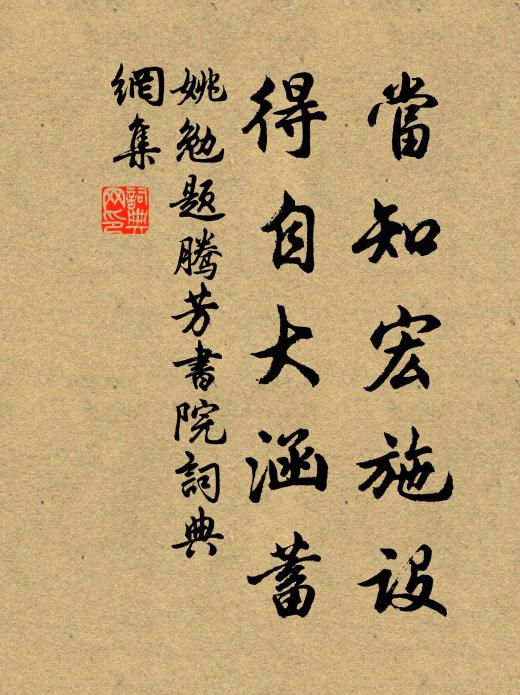 當知宏施設
得自大涵蓄
姚勉題騰芳書院詞典
網集
詞典
网印